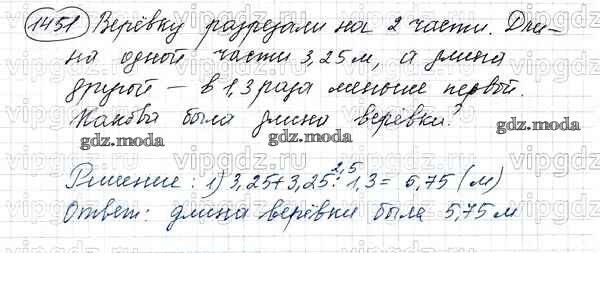 1451 Верёвку разрезали на 2 части. Дли-
на одной части 3,25 м, а длина
другой – в 1,3 раза меньше первой.
Какова была длина верёвки?
gdz.moda gdz.moda gdz.moda
2,5
Решение: 1) 3,25+3,25:1,3= 5,75 (м)
Ответ: длина верёвки была 5,75 м